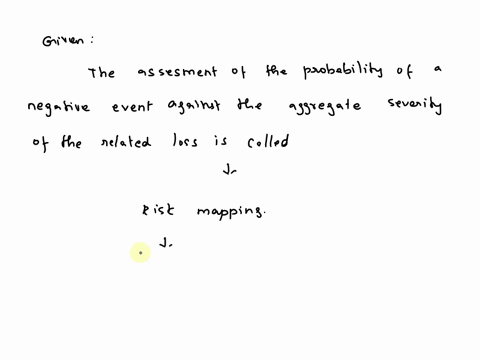 Given :
The assesment of the probability of a
negative event against the aggregate severity
of the related loss is called
Risk mapping.